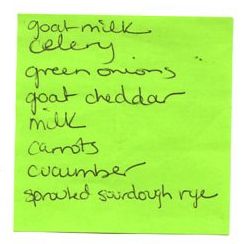 goat milk
celery
green onions
goat cheddar
milk
carrots
cucumber
sprouted sourdough rye